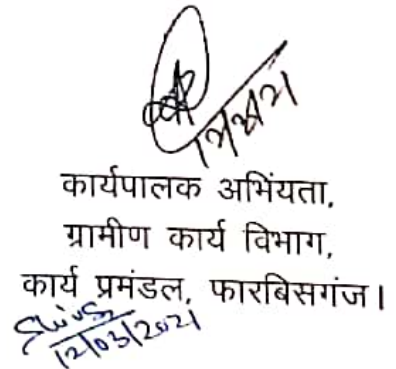 कार्यपालक अभिंयता,
ग्रामीण कार्य विभाग,
कार्य प्रमंडल, फारबिसगंज।
12/03/2021